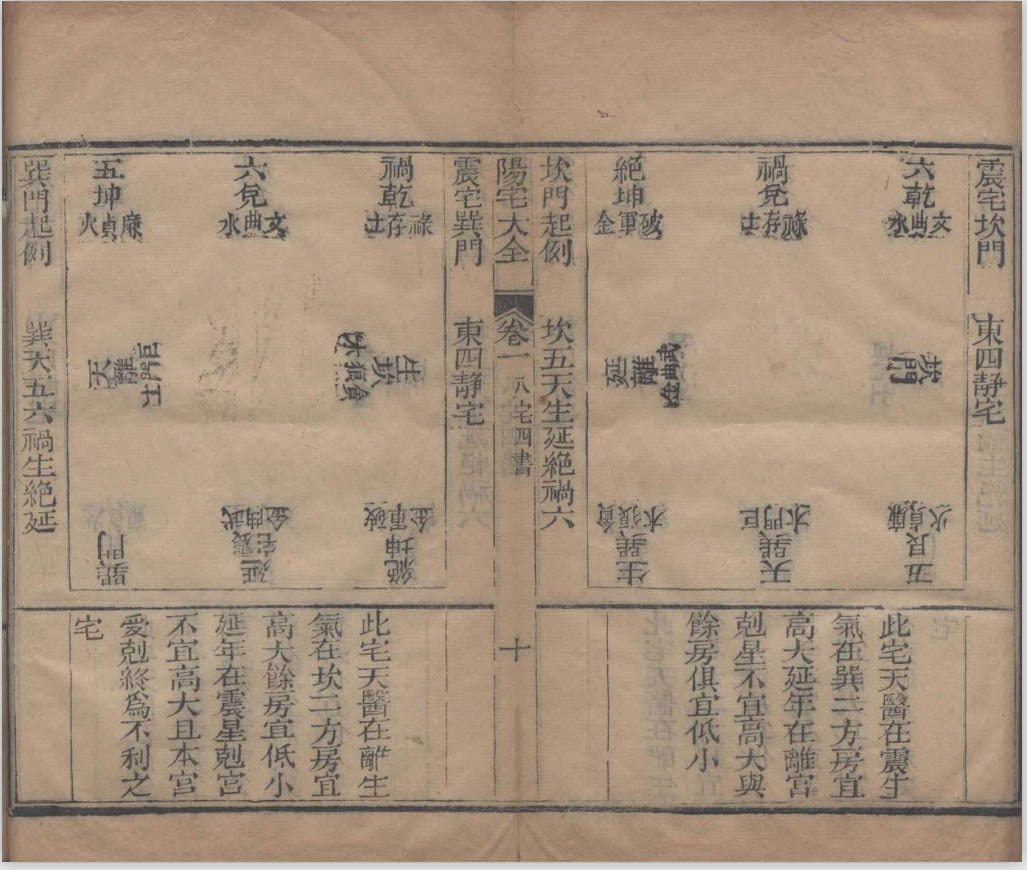 震宅坎門　東四靜宅
六乾
文曲水
禍兌
祿存土
絕坤
破軍金
坎門
延離
武曲金
五艮
廉貞火
天震
巨門
生巽
貪狼木
坎門起例　坎五天生延絕禍六
此宅天醫在震生
氣在巽二方房宜
高大延年在離宮
剋星不宜高大與
餘房俱宜低小
陽宅大全　卷一　八宅四書　十
震宅巽門　東四靜宅
禍乾
祿存土
六兌
文曲水
五坤
廉貞火
生坎
貪狼木
天離
巨門土
絕
破軍金
延震宅
武曲金
巽門
巽門起例　巽天五六禍生絕延
此宅天醫在離生
氣在坎二方房宜
高大餘房宜低小
延年在震星剋宮
不宜高大且本宮
受剋終爲不利之
宅